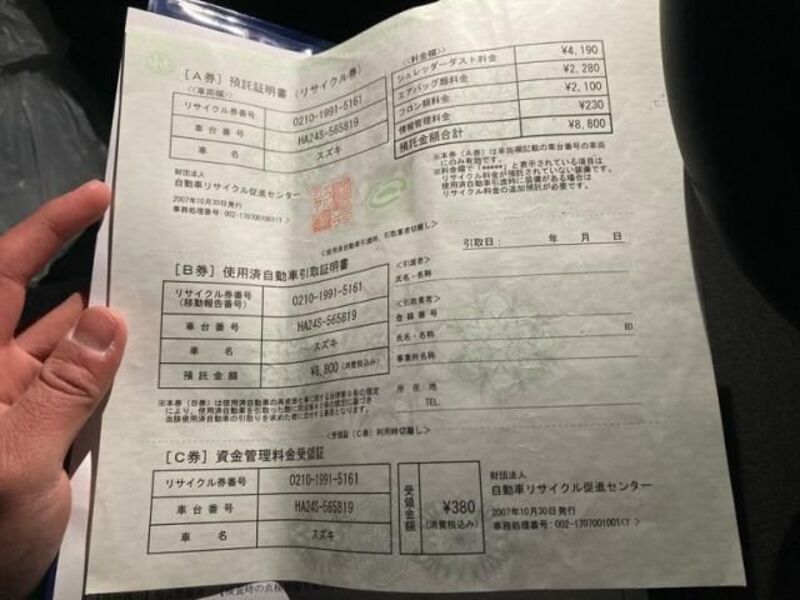 [A券] 預託証明書 (リサイクル券)
<<車両欄>>
リサイクル券番号 0210-1991-5161
車台番号 HA24S-565819
車名 スズキ
財団法人
自動車リサイクル促進センター
2007年10月30日発行
事務処理番号: 002-1707001001(1 >
<<料金欄>>
シュレッダーダスト料金 ¥4,190
エアバッグ類料金 ¥2,280
フロン類料金 ¥2,100
情報管理料金 ¥230
預託金額合計 ¥8,800
※本券(A券)は車両欄記載の車台番号の車両
にのみ有効です。
※料金欄で「*****」と表示されている項目は
リサイクル料金が預託されていない装備です。
使用済自動車引渡時に装備がある場合は
リサイクル料金の追加預託が必要です。
<使用済自動車引渡時、引取業者切離し>
[B券] 使用済自動車引取証明書
リサイクル券番号
(移動報告番号) 0210-1991-5161
車台番号 HA24S-565819
車名 スズキ
預託金額 ¥8,800(消費税込み)
引取日: 年 月 日
<引渡者>
氏名・名称
<引取業者>
登録番号
氏名・名称 印
事業所名称
所在地
TEL
※本券(B券)は使用済自動車の再資源化等に関する法律第9条の規定
により、使用済自動車を引取った際に
当該使用済自動車の引取りを求めた者に交付する書面となります。
<受領証(C券)利用時切離し>
[C券] 資金管理料金受領証
リサイクル券番号 0210-1991-5161
車台番号 HA24S-565819
車名 スズキ
受領金額 ¥380
(消費税込み)
財団法人
自動車リサイクル促進センター
2007年10月30日発行
事務処理番号: 002-1707001001(1 >